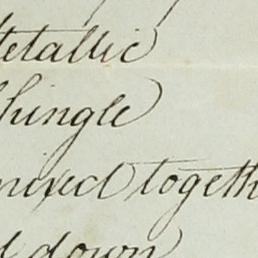 Metallic
Shingle
mixed togeth
d down